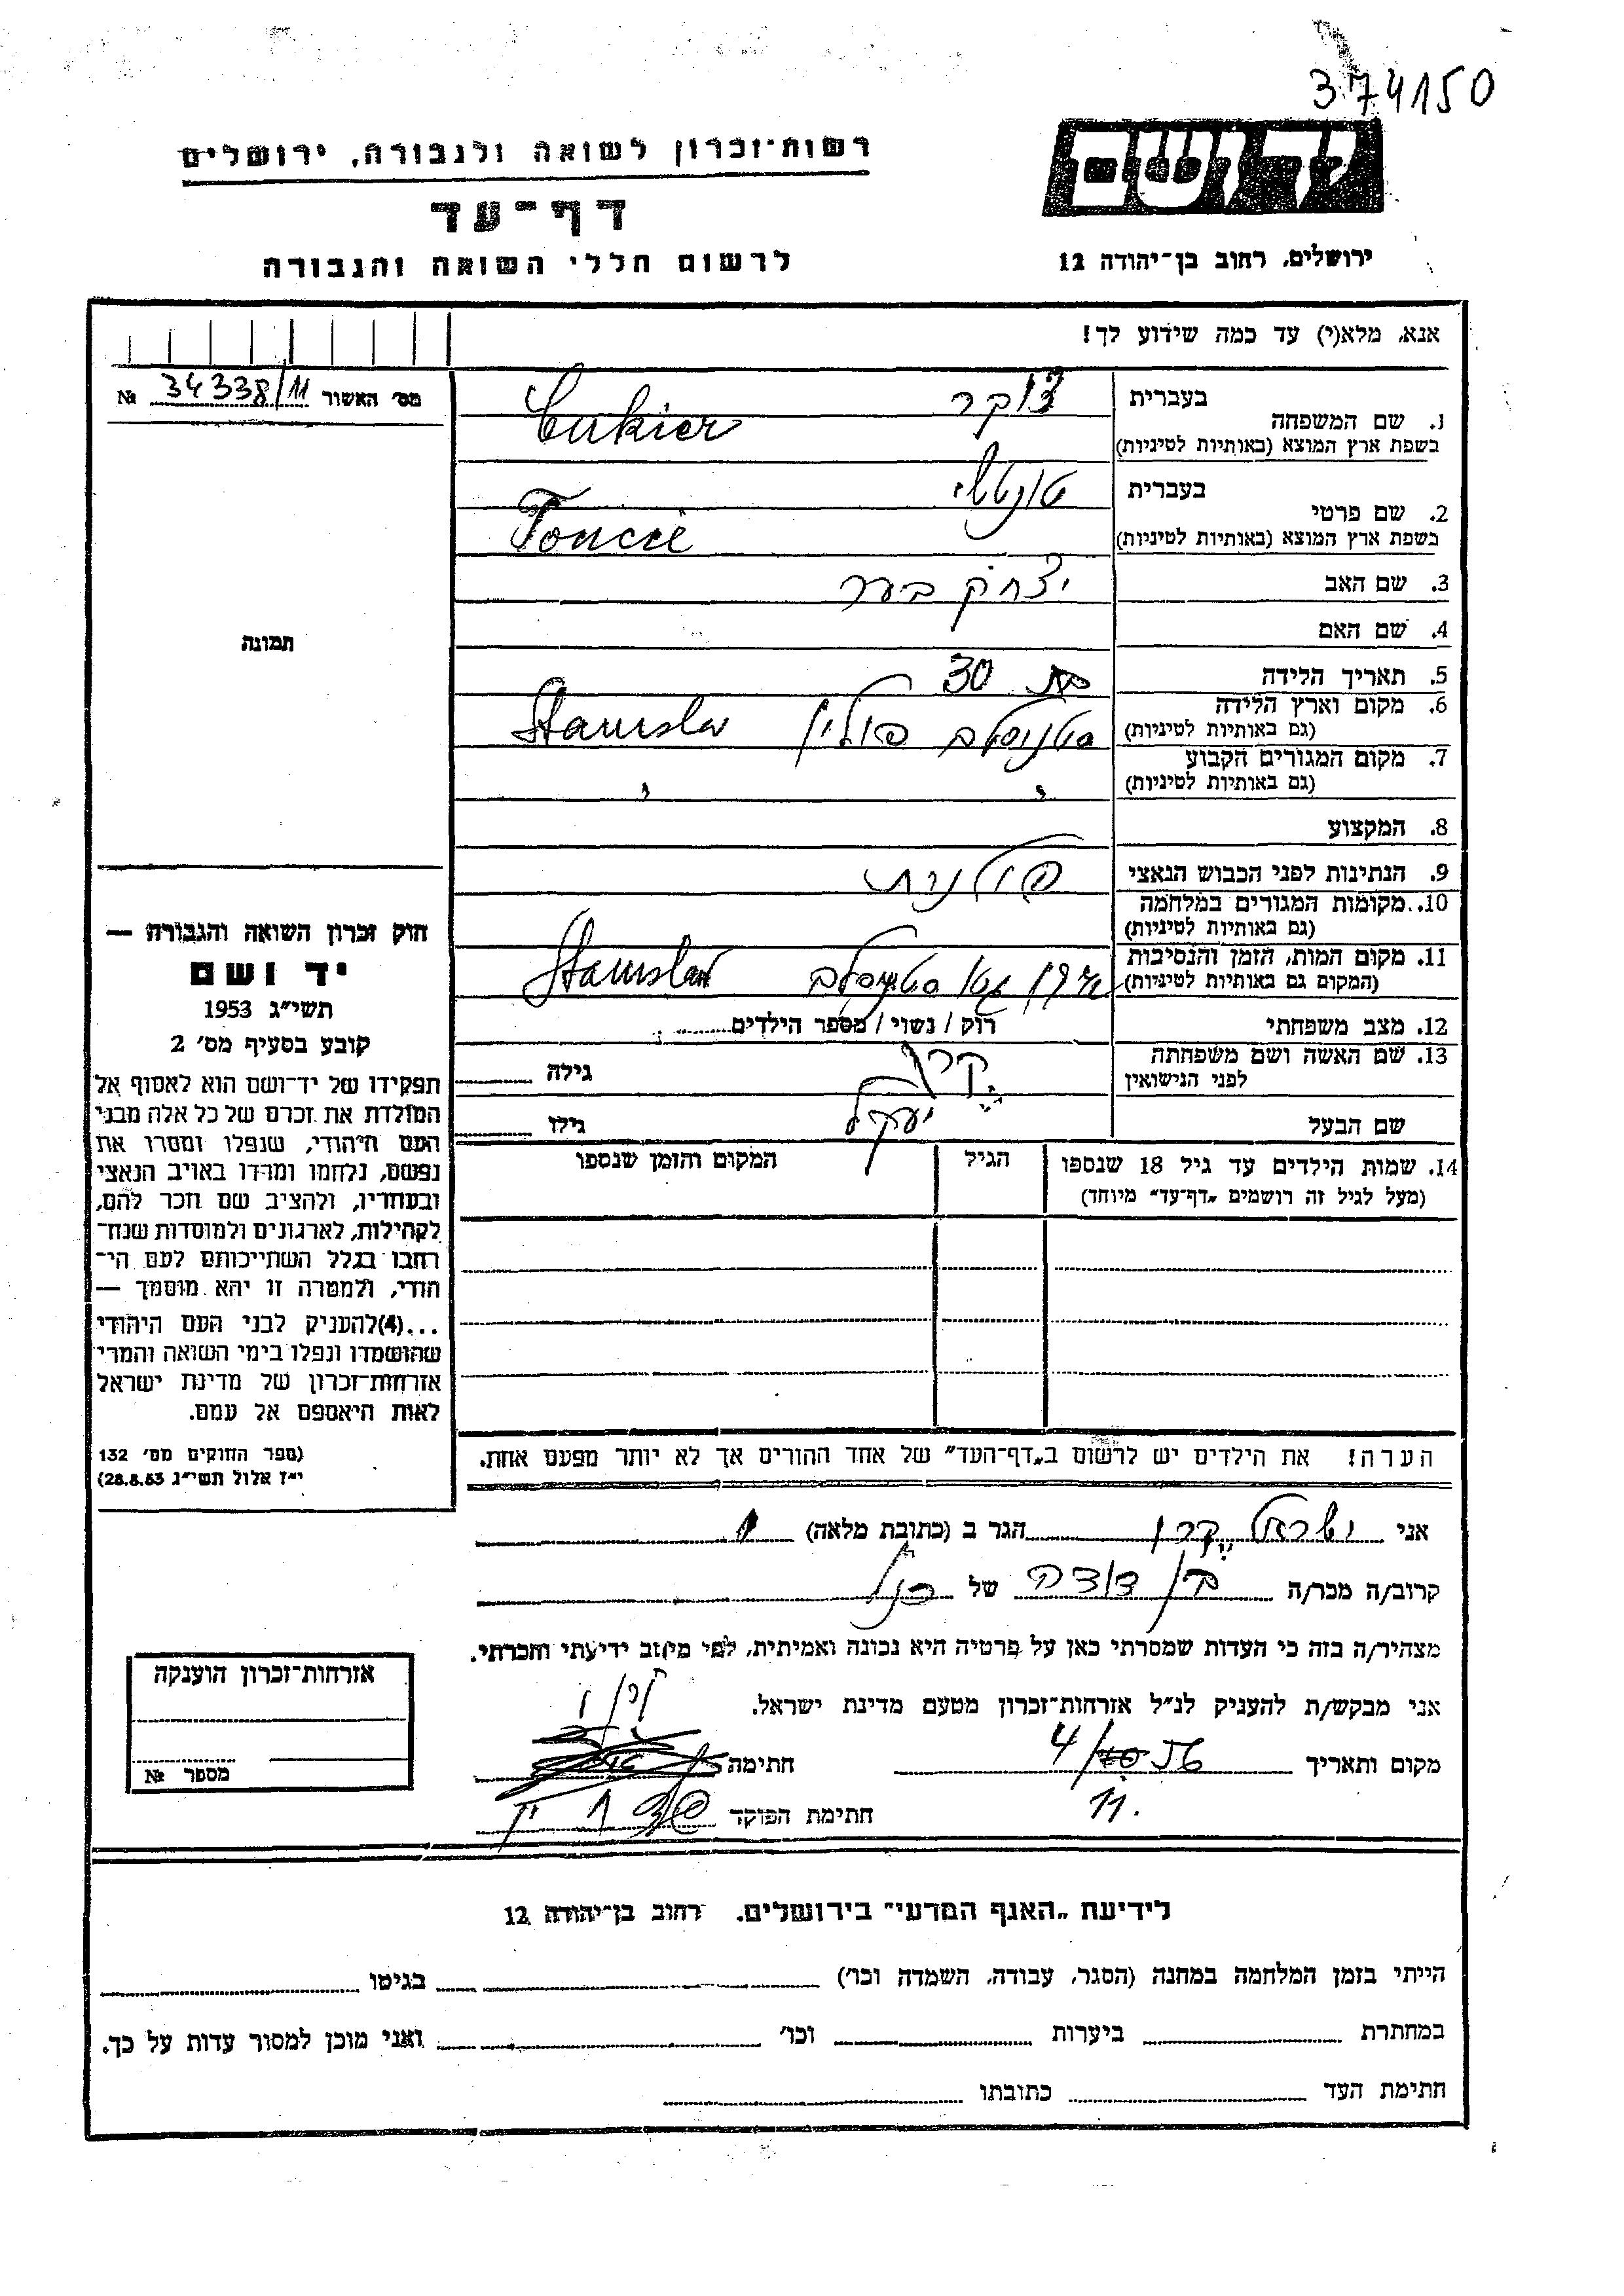 374150
רשות-זכרון לשואה ולגבורה, ירושלים
דף-עד
לרשום חללי השואה והגבורה
יד ושם
ירושלים, רחוב בן-יהודה 12
אנא, מלא(י) עד כמה שידוע לך!
מס׳ האשור № 34338/11
תמונה
1. שם המשפחה בעברית צוקר
בשפת ארץ המוצא (באותיות לטיניות) Cukier
2. שם פרטי בעברית
בשפת ארץ המוצא (באותיות לטיניות)
3. שם האב יצחק בער
4. שם האם
5. תאריך הלידה בת 30
6. מקום וארץ הלידה סטניסלב פולין Stanislav
(גם באותיות לטיניות)
7. מקום המגורים הקבוע
(גם באותיות לטיניות)
8. המקצוע
9. הנתינות לפני הכבוש הנאצי פולנית
10. מקומות המגורים במלחמה
(גם באותיות לטיניות)
11. מקום המות, הזמן והנסיבות סטניסלב Stanislav
(המקום גם באותיות לטיניות)
12. מצב משפחתי רוק / נשוי / מספר הילדים
13. שם האשה ושם משפחתה גילה
לפני הנישואין
שם הבעל גילו
14. שמות הילדים עד גיל 18 שנספו הגיל המקום והזמן שנספו
(מעל לגיל זה רושמים „דף-עד״ מיוחד)
הערה! את הילדים יש לרשום ב„דף-העד״ של אחד ההורים אך לא יותר מפעם אחת.
חוק זכרון השואה והגבורה —
יד ושם
תשי״ג 1953
קובע בסעיף מס׳ 2
תפקידו של יד-ושם הוא לאסוף אל
המולדת את זכרם של כל אלה מבני
העם היהודי, שנפלו ומסרו את
נפשם, נלחמו ומרדו באויב הנאצי
ובעוזריו, ולהציב שם וזכר להם,
לקהילות, לארגונים ולמוסדות שנח־
רבו בגלל השתייכותם לעם הי־
הודי, ולמטרה זו יהא מוסמך —
...(4)להעניק לבני העם היהודי
שהושמדו ונפלו בימי השואה והמרי
אזרחות-זכרון של מדינת ישראל
לאות היאספם אל עמם.
(ספר החוקים מס׳ 132
י״ז אלול תשי״ג 28.8.53)
אני ישראל קרן הגר ב (כתובת מלאה)
קרוב/ה מכר/ה בן דודה של הנ״ל
מצהיר/ה בזה כי העדות שמסרתי כאן על פרטיה היא נכונה ואמיתית, לפי מיטב ידיעתי והכרתי.
אני מבקש/ת להעניק לנ״ל אזרחות-זכרון מטעם מדינת ישראל.
מקום ותאריך חתימה
חתימת הפוקד
אזרחות-זכרון הוענקה
מספר №
לידיעת „האגף המדעי״ בירושלים. רחוב בן-יהודה 12
הייתי בזמן המלחמה במחנה (הסגר, עבודה, השמדה וכו׳) בגיטו
במחתרת ביערות וכו׳ ואני מוכן למסור עדות על כך.
חתימת העד כתובתו